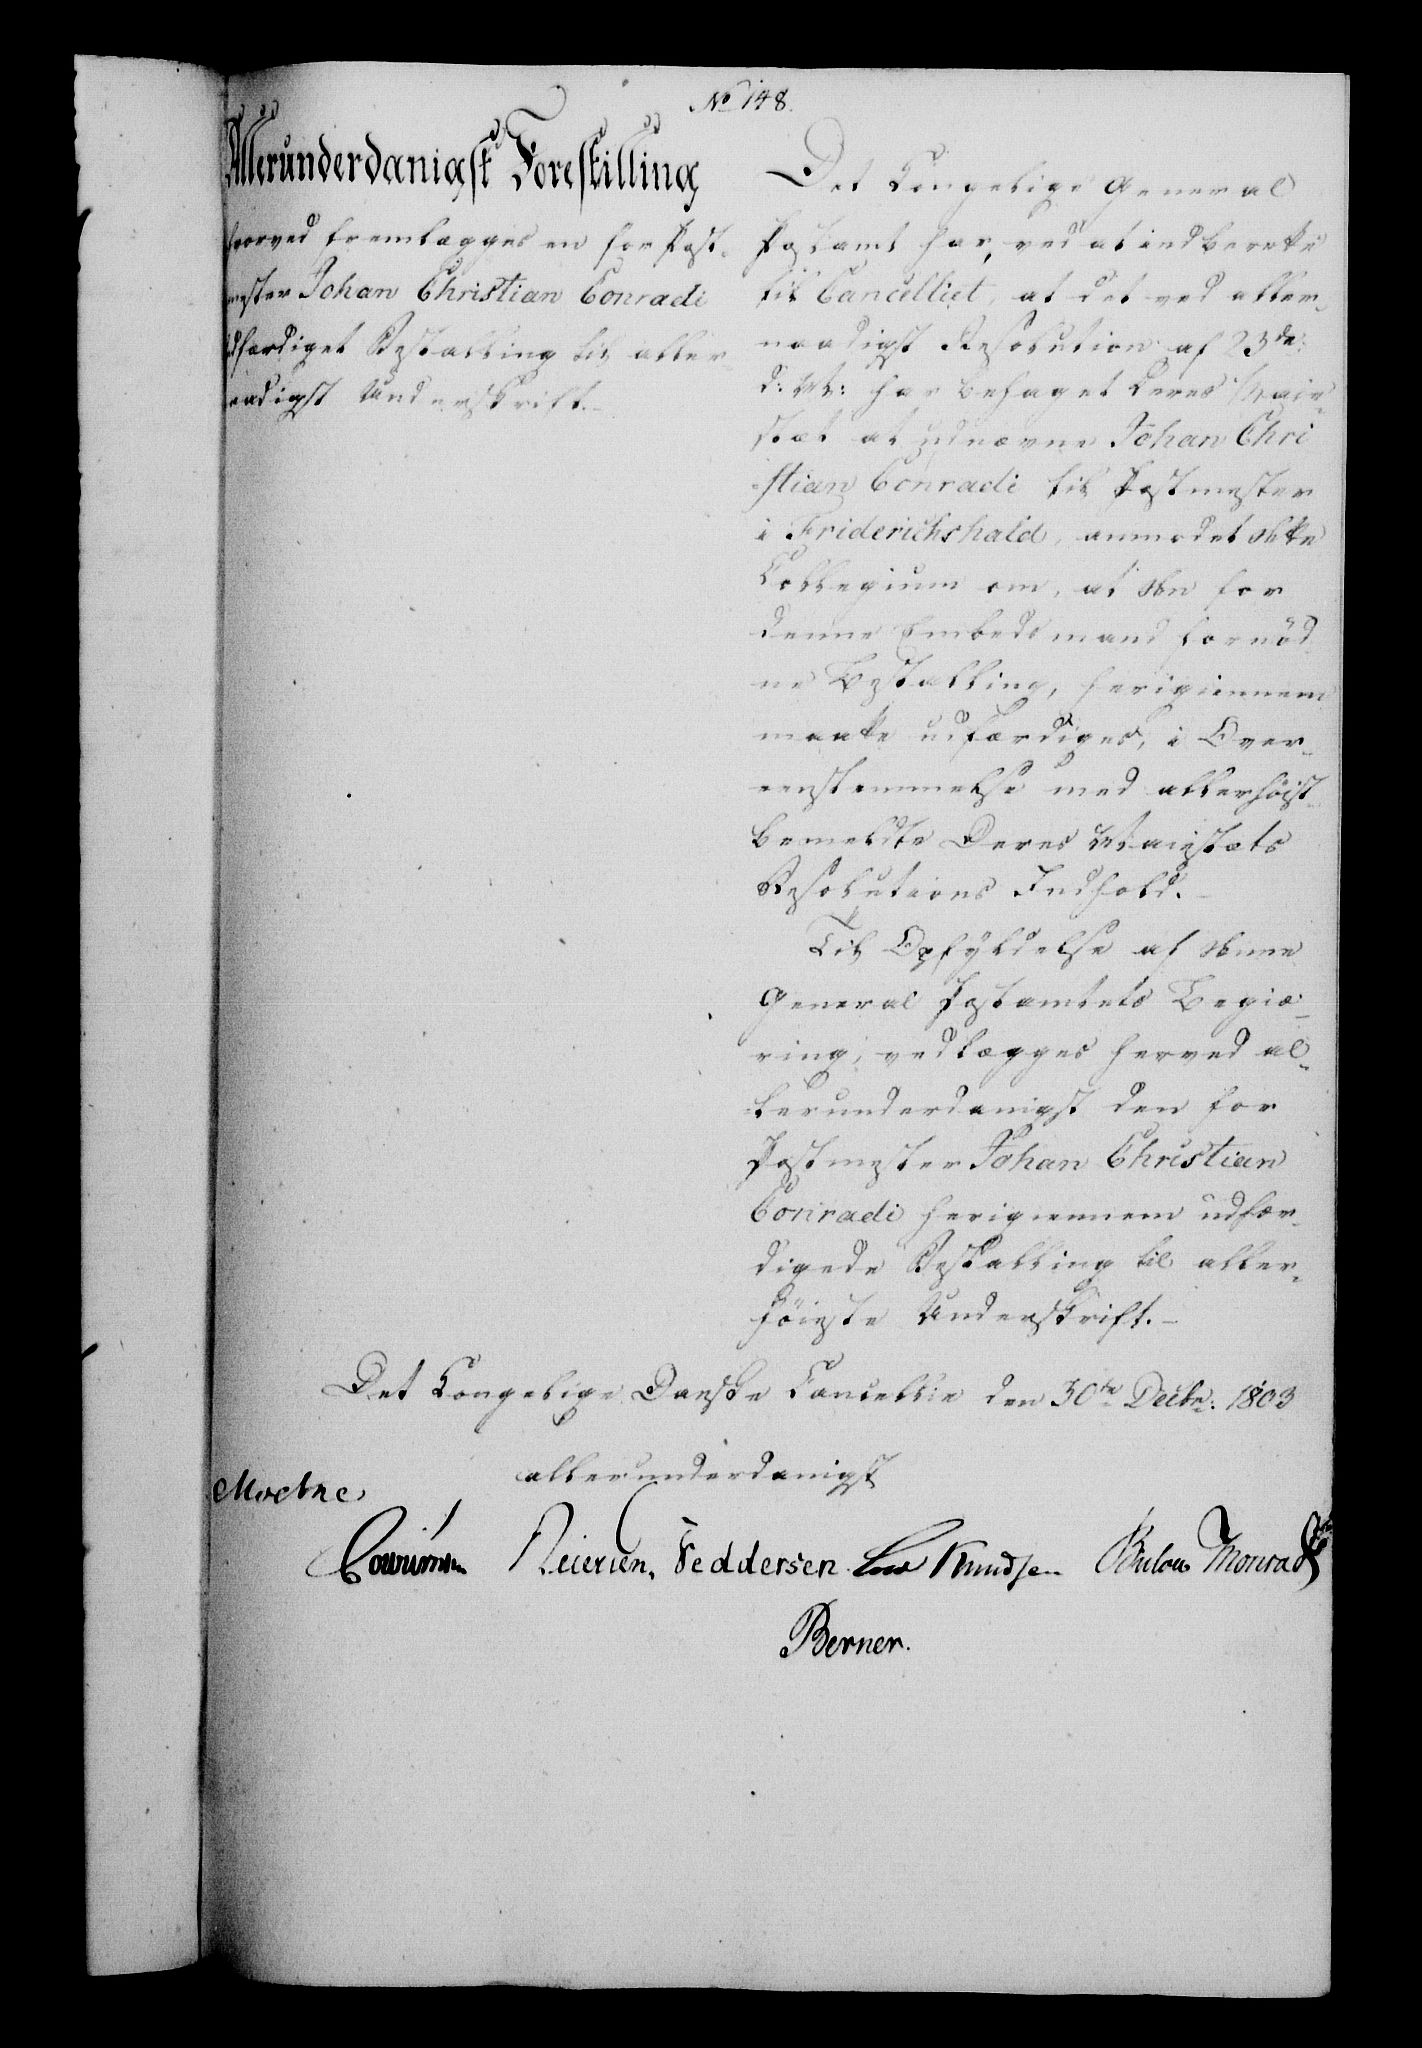 No 148.
Allerunderdanigst Forestilling
hvorved fremlægges en for Post-
mester Johan Christian Conradi
udfærdiget Bestalling til aller-
naadigst Underskrift.
Det Kongelige General
Postamt har, ved at indberette
til Cancelliet, at det ved aller-
naadigst Resolution af 23de
d: M: har behaget Deres Maje-
stæt at udnævne Johan Chri
-stian Conradi til Postmester
i Friderichshald, anmodet dette
Collegium om, at den for
denne Embedsmand fornød
ne Bestalling, herigiennem
maatte udfærdiges, i Over-
eenstemmelse med allerhøist-
bemeldte Deres Majestæts
Resolutions Indhold.
Til Opfyldelse af denne
General Postamtets Begiæ-
ring, vedlægges herved al-
lerunderdanigst den for
Postmester Johan Christian
Conradi herigiennem udfær-
digede Bestalling til aller-
høieste Underskrift.
Det Kongelige Danske Cancellie den 30te Decbr: 1803
allerunderdanigst
Moltke
Feddersen Knudsen Bülow Monrad
Berner.